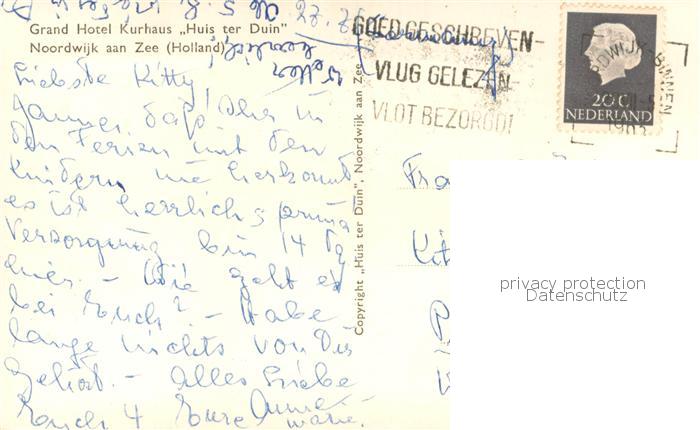 Grand Hotel Kurhaus „Huis ter Duin"
Noordwijk aan Zee (Holland)
Liebste Kitty!
Jammer, daß Ihr in
den Ferien mit den
Kindern nie herkommt
es ist herrlich & prima
Versorgung bin 14 Tg
hier. – Wie geht es
bei Euch? – Habe
lange nichts von Dir
gehört. – Alles Liebe
Euch 4 Eure Annemarie.
Wetter herrlich!
Copyright „Huis ter Duin", Noordwijk aan Zee
GOED GESCHREVEN-
VLUG GELEZEN-
VLOT BEZORGD!
20 C
NEDERLAND
WIJK-BINNEN
Fra
Kit
privacy protection
Datenschutz